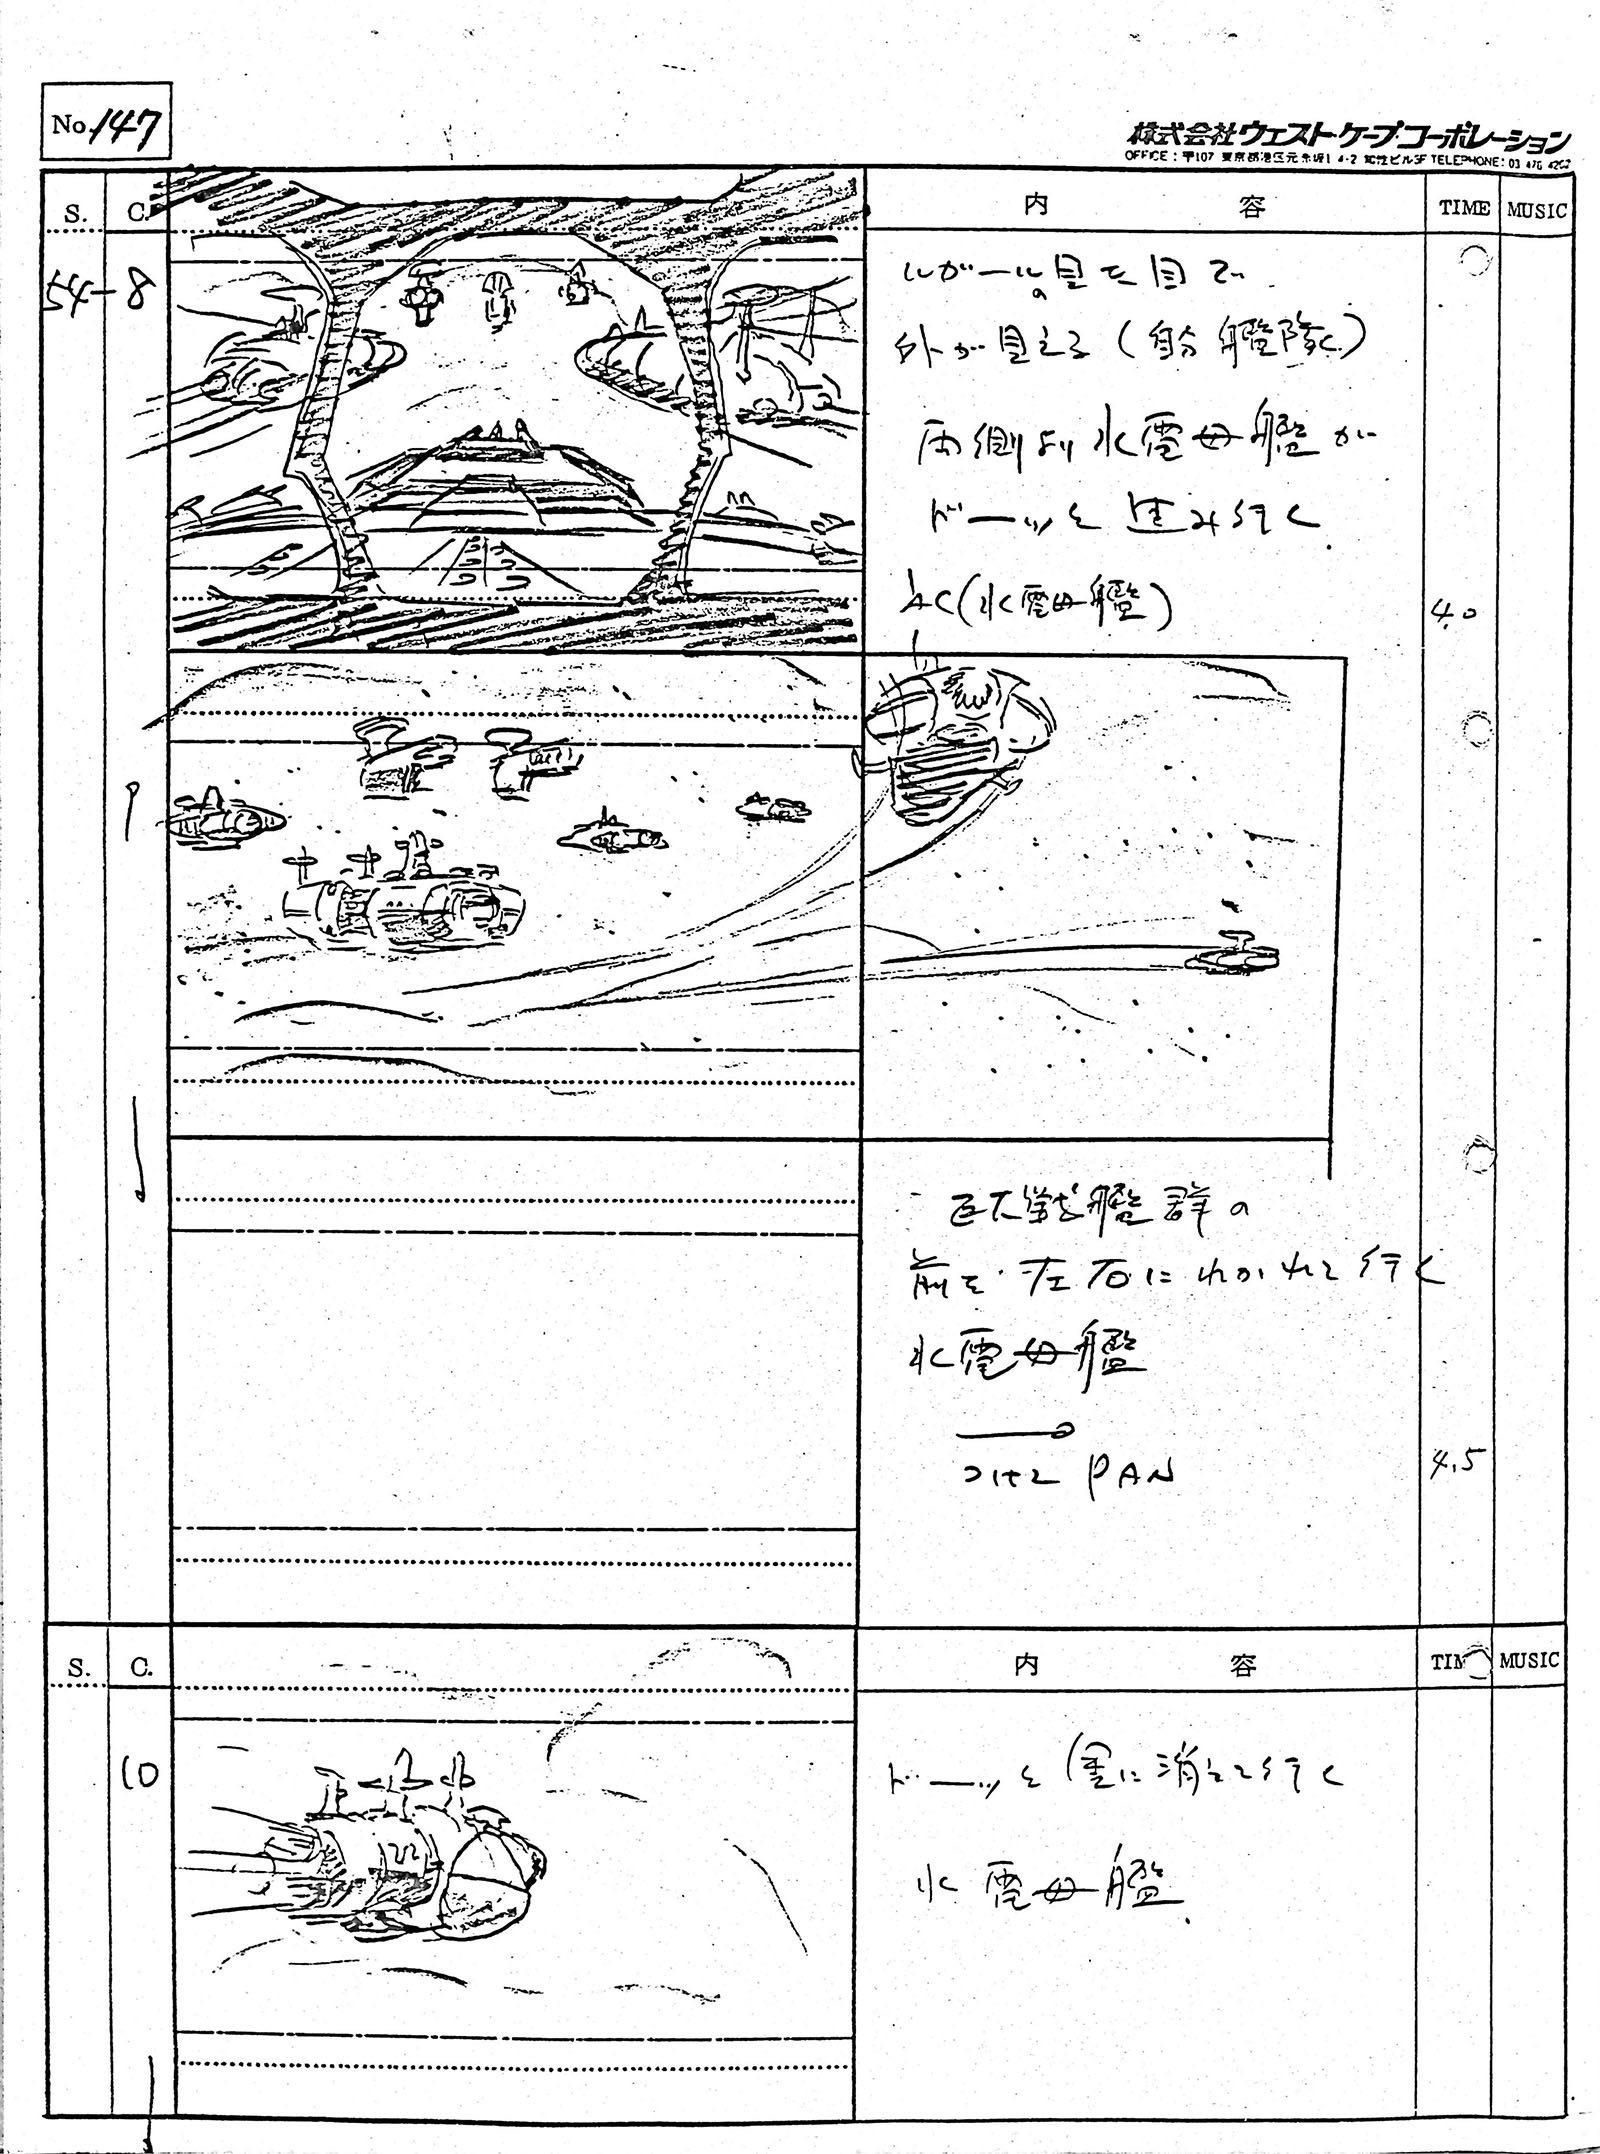 No. 147
株式会社ウエスト・ケープ・コーポレーション
OFFICE：〒107 東京都港区元赤坂1-4-2 ビル3F TELEPHONE：03
S. C. 内容 TIME MUSIC
54-8
ルガールの目を
外が見える（自分 艦隊）
両側より水雷母艦が
ドーッと進み行く
AC（水雷母艦）
4.0
9
巨大戦艦群の
前を左右にわかれて行く
水雷母艦
つけPAN
4.5
S. C. 内容 TIME MUSIC
10
ドーッと奥に消えて行く
水雷母艦